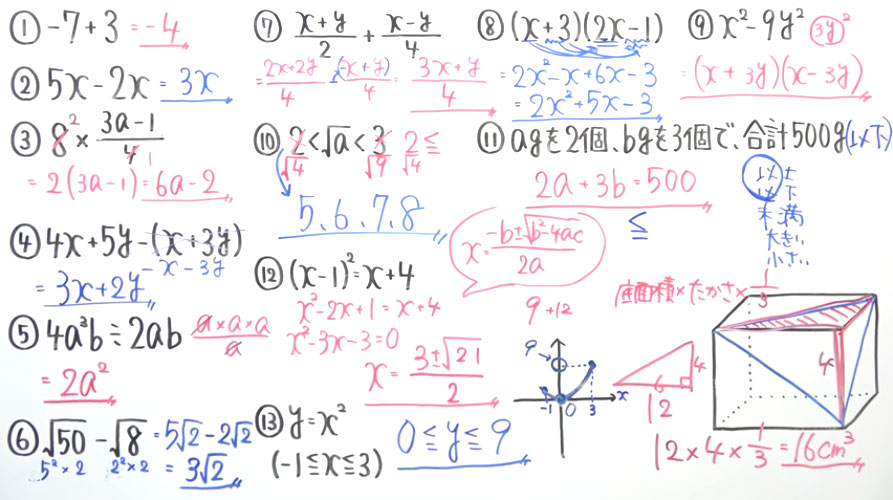 ① -7+3 = -4
② 5x-2x = 3x
③ 8² × (3a-1)/4 1
= 2(3a-1) = 6a-2
④ 4x+5y-(x+3y)
-x-3y
= 3x+2y
⑤ 4a³b÷2ab a×a×a/a
= 2a²
⑥ √50-√8 = 5√2-2√2
5²×2 2²×2 = 3√2
⑦ (x+y)/2 + (x-y)/4
= (2x+2y)/4 + (x-y)/4 = (3x+y)/4
⑧ (x+3)(2x-1)
= 2x²-x+6x-3
= 2x²+5x-3
⑨ x²-9y² (3y)²
= (x+3y)(x-3y)
⑩ 2<√a<3 2≦
√4 √9 √4
5、6、7、8
⑪ agを2個、bgを3個で、合計500g(以下)
2a+3b=500
≦
以上
以下
未満
大きい
小さい
⑫ (x-1)²=x+4
x²-2x+1=x+4
x²-3x-3=0
x=(-b±√(b²-4ac))/2a
9+12
x=(3±√21)/2
⑬ y=x²
(-1≦x≦3)
0≦y≦9
9
-1 0 3 x
底面積×たかさ×1/3
4
6
12
4
12×4×1/3=16cm³